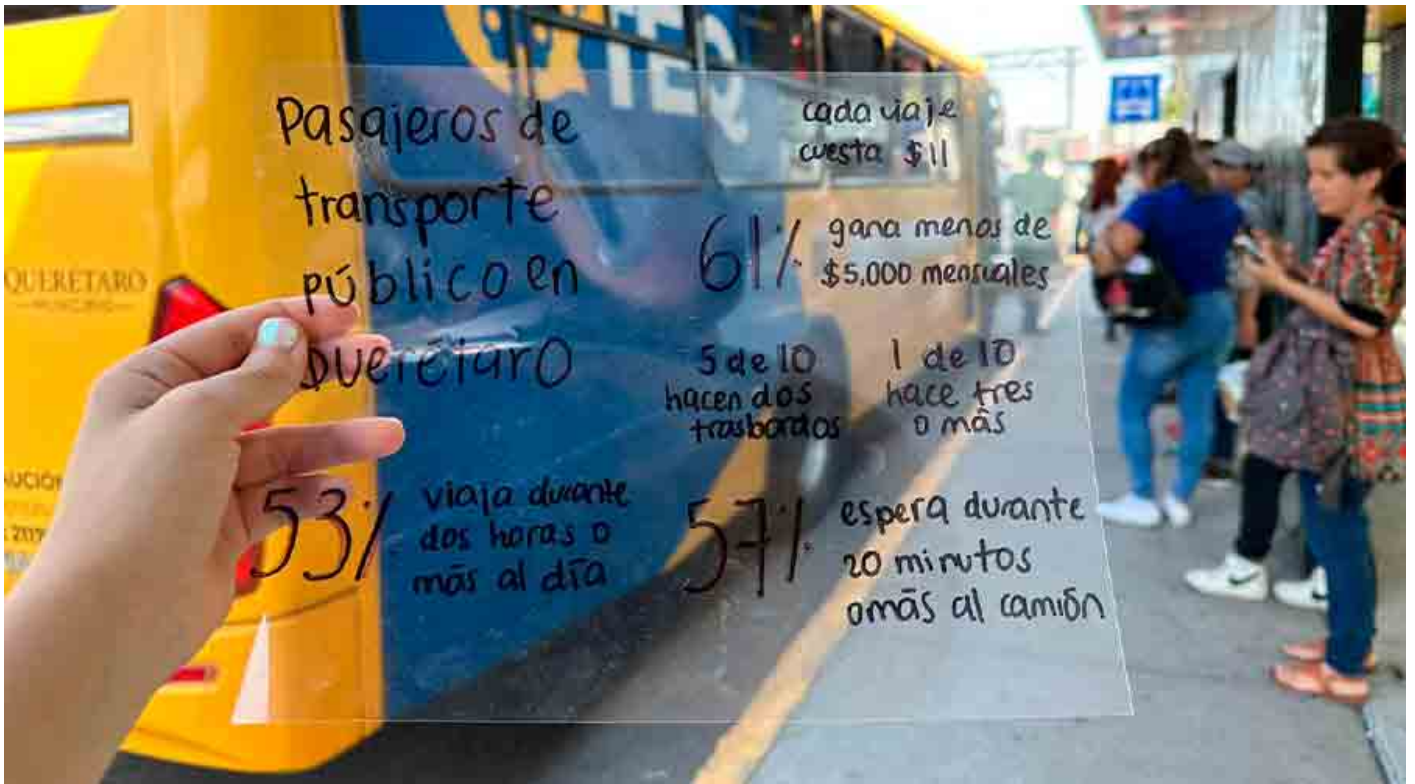 TEQ
QUERÉTARO
Pasajeros de
transporte
público en
Querétaro
cada viaje
cuesta $11
61% gana menos de
$5,000 mensuales
5 de 10
hacen dos
trasbordos
1 de 10
hace tres
o más
53% viaja durante
dos horas o
más al día
57% espera durante
20 minutos
o más al camión